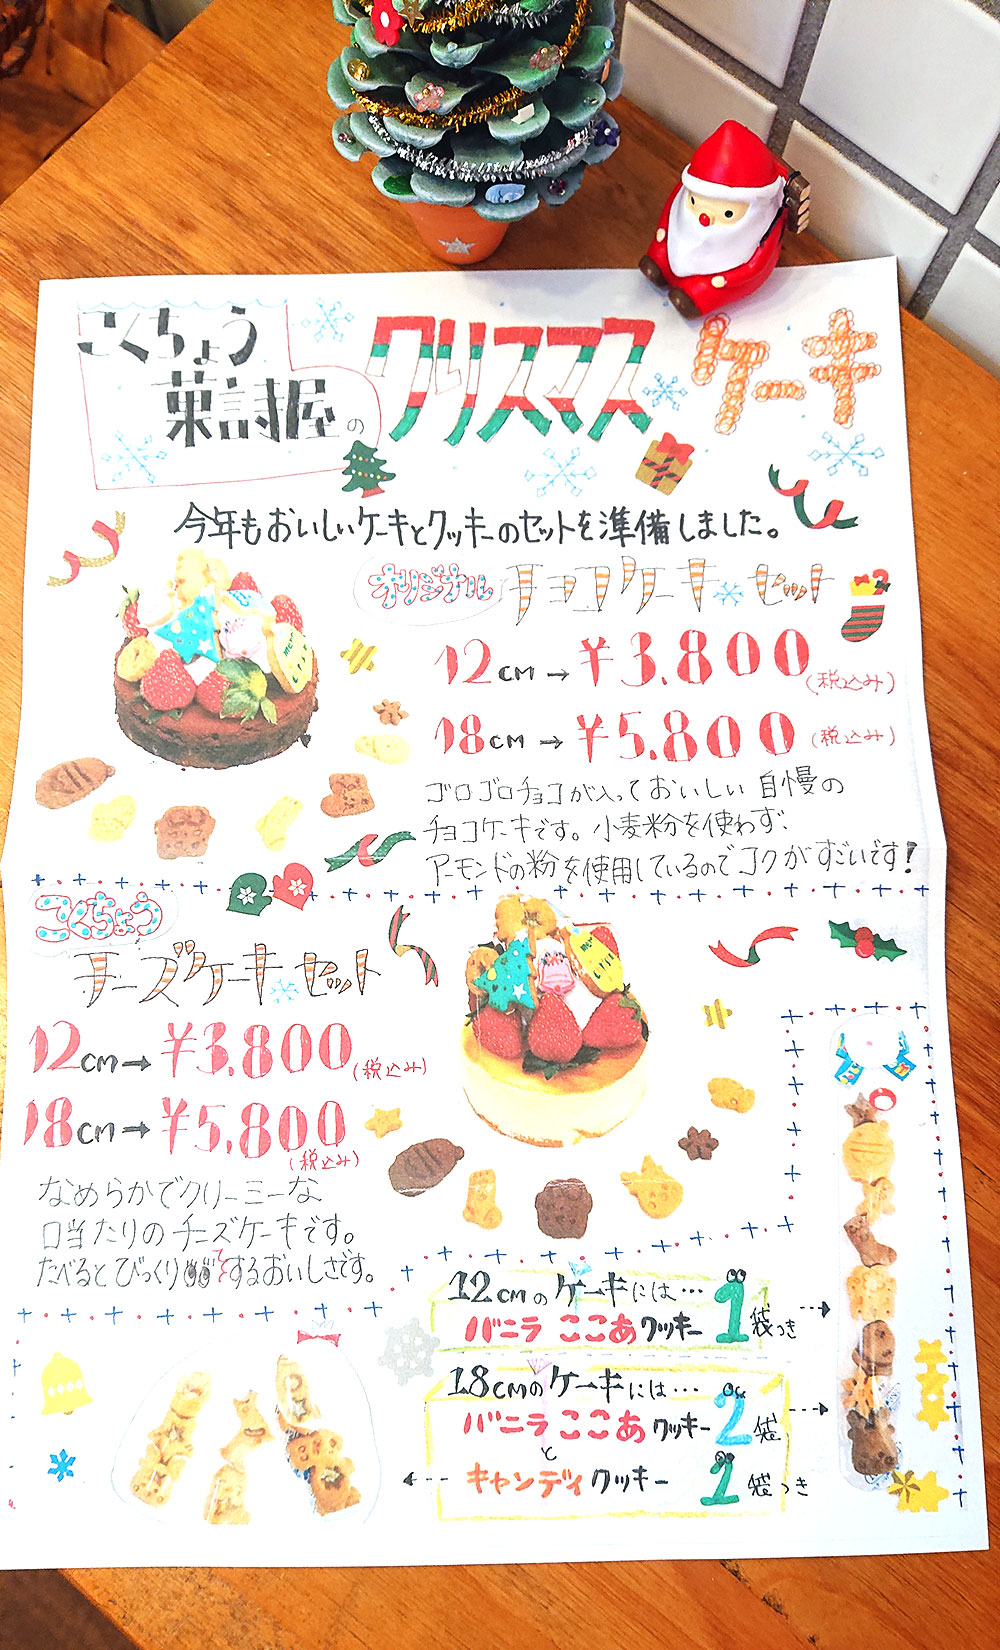 こくちょう
菓詩屋の
クリスマス ケーキ
今年もおいしいケーキとクッキーのセットを準備しました。
オリジナル チョコケーキセット
12cm→¥3.800(税込み)
18cm→¥5.800(税込み)
ゴロゴロチョコが入っておいしい自慢の
チョコケーキです。小麦粉を使わず、
アーモンドの粉を使用しているのでコクがすごいです!
こくちょう
チーズケーキセット
12cm→¥3.800(税込み)
18cm→¥5.800
(税込み)
なめらかでクリーミーな
口当たりのチーズケーキです。
たべるとびっくりするおいしさです。
12cmのケーキには…
バニラ ここあクッキー 1袋つき
18cmのケーキには…
バニラ ここあクッキー 2袋
と
キャンディクッキー 1袋つき